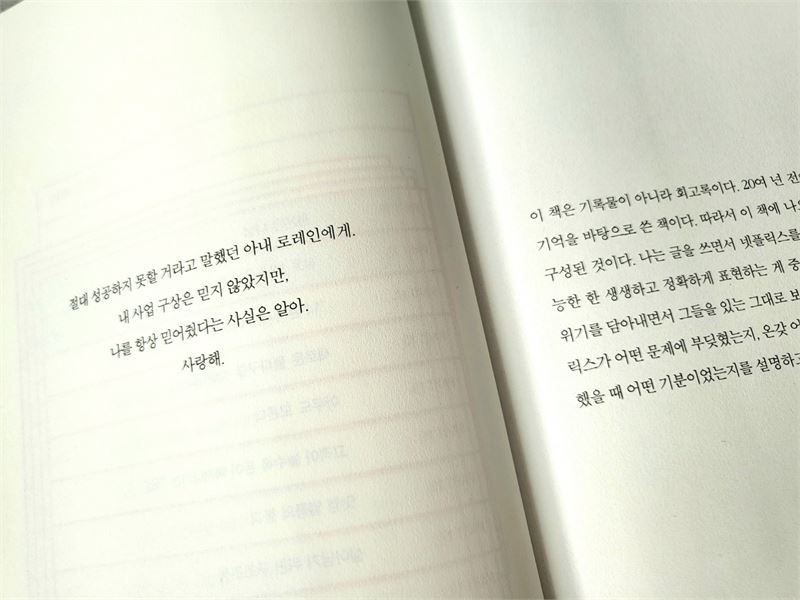 절대 성공하지 못할 거라고 말했던 아내 로레인에게.
내 사업 구상은 믿지 않았지만,
나를 항상 믿어줬다는 사실은 알아.
사랑해.
이 책은 기록물이 아니라 회고록이다. 20여 년 전
기억을 바탕으로 쓴 책이다. 따라서 이 책에
구성된 것이다. 나는 글을 쓰면서 넷플릭스를
능한 한 생생하고 정확하게 표현하는 게
위기를 담아내면서 그들을 있는 그대로
릭스가 어떤 문제에 부딪혔는지, 온갖
했을 때 어떤 기분이었는지를 설명하고